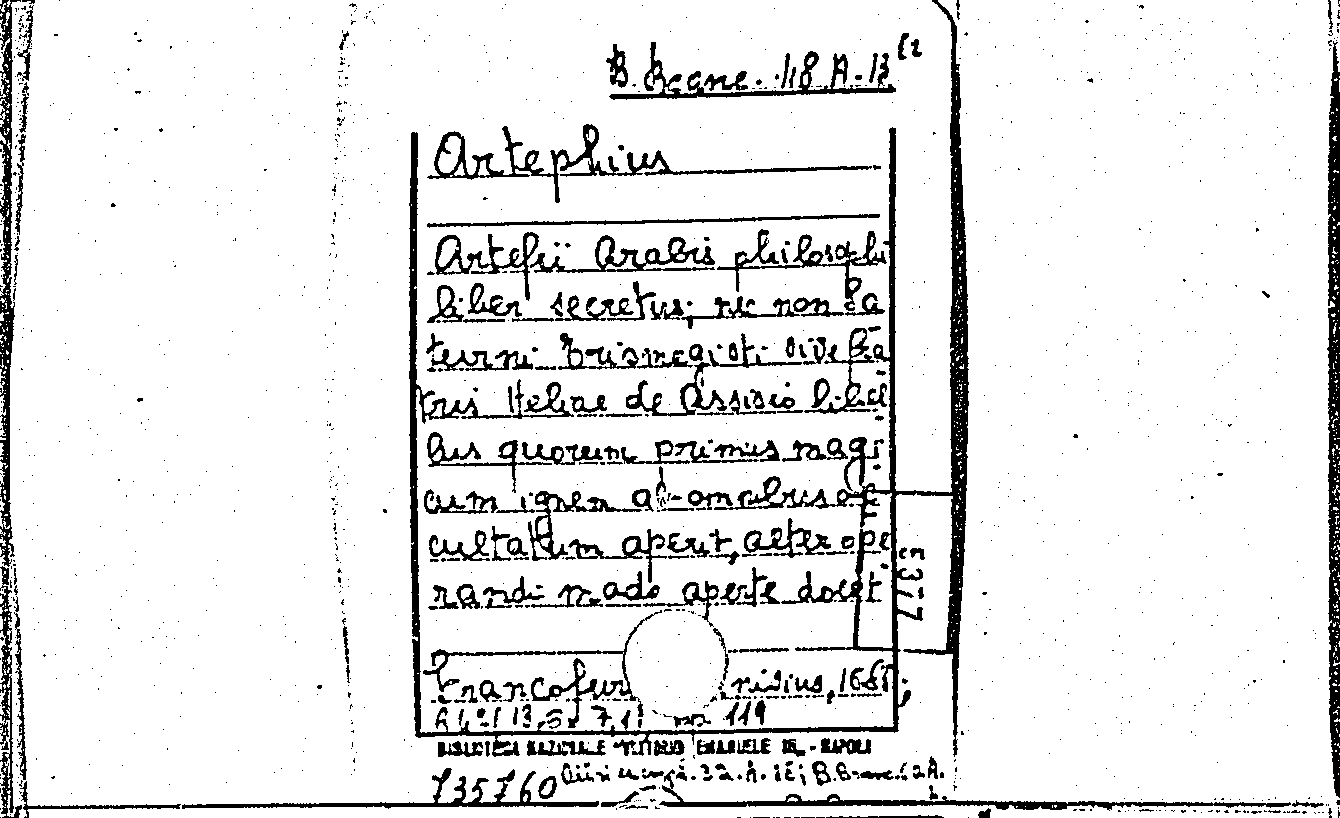 B. Branc. 118 A. 13
Artephius
Artefii Arabis philosophi
liber secretus; nec non Sa
turni Trismegisti sive Fra
tris Heliae de Assisio libel
lus quorum primus magi
cum ignem ab omnibus oc
cultatum aperit, alter ope
randi modo aperte docet
5377
Francofur nidius, 1685;
119
BIBLIOTECA NAZIONALE "VITTORIO EMANUELE III" - NAPOLI
735760